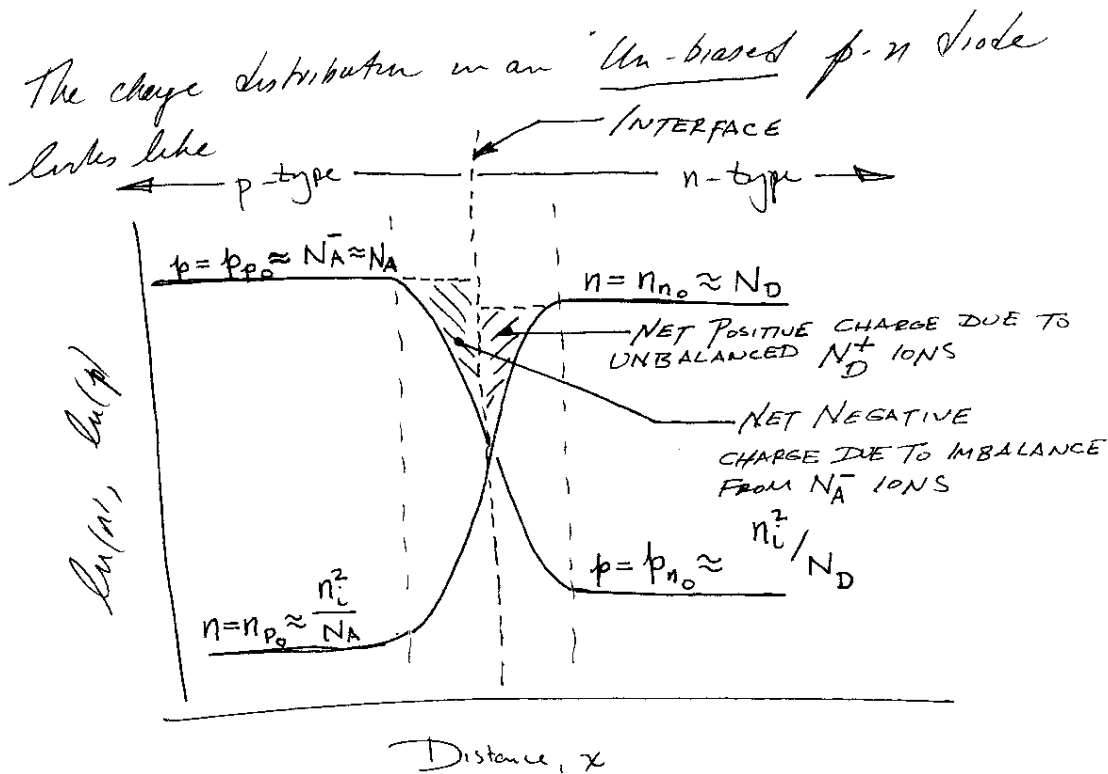 The charge distribution in an Un-biased p-n diode
looks like
INTERFACE
p-type
n-type
p = pₚ₀ ≈ N_A⁻ ≈ N_A
n = nₙ₀ ≈ N_D
NET POSITIVE CHARGE DUE TO
UNBALANCED N_D⁺ IONS
NET NEGATIVE
CHARGE DUE TO IMBALANCE
FROM N_A⁻ IONS
ln(n), ln(p)
p = pₙ₀ ≈ nᵢ²/N_D
n = nₚ₀ ≈ nᵢ²/N_A
Distance, x